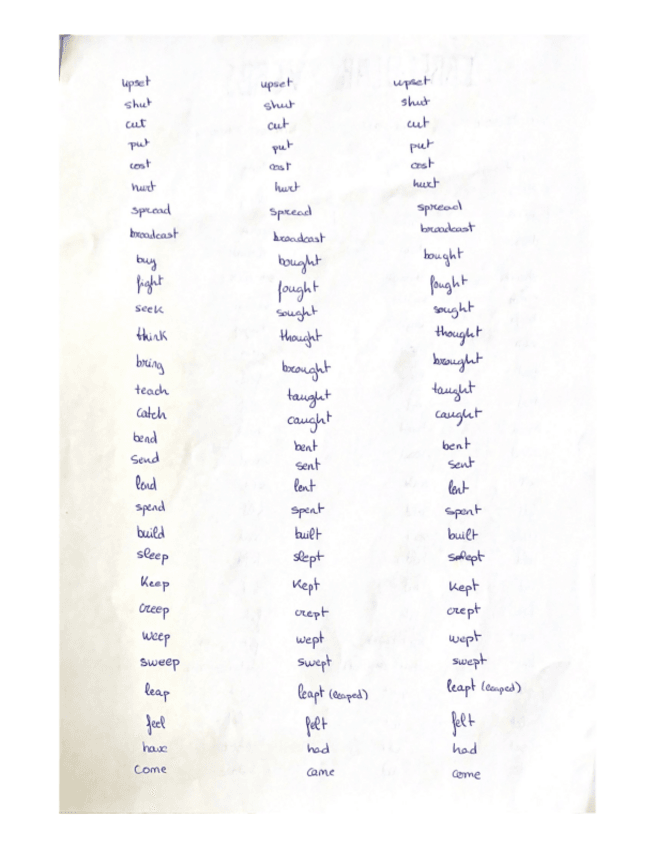 upset upset upset
shut shut shut
cut cut cut
put put put
cost cost cost
hurt hurt hurt
spread spread spread
broadcast broadcast broadcast
buy bought bought
fight fought fought
seek sought sought
think thought thought
bring brought brought
teach taught taught
catch caught caught
bend bent bent
send sent sent
lend lent lent
spend spent spent
build built built
sleep slept slept
keep kept kept
creep crept crept
weep wept wept
sweep swept swept
leap leapt (leaped) leapt (leaped)
feel felt felt
have had had
come came come